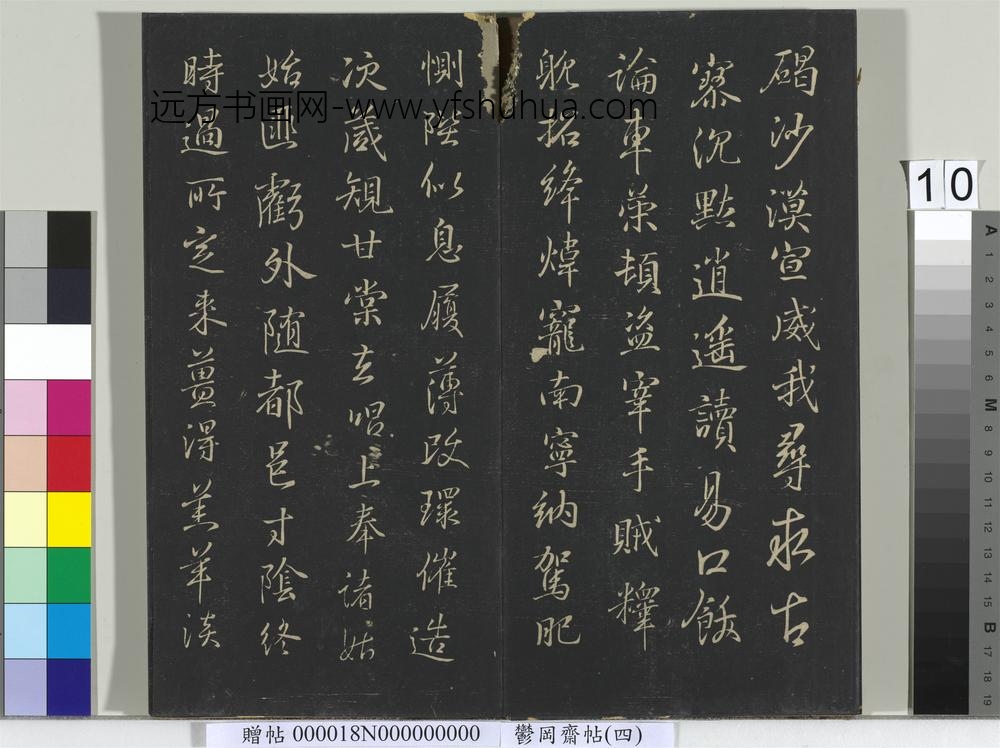 碣沙漠宣威我尋求古
寥沉默逍遥讀易口飫
論車策頓盜宰手賊釋
躭招絳煒寵南寧納駕肥
惻陛似息履薄改環催造
次感規甘棠去唱上奉諸姑
始匪虧外随都邑寸陰終
時過所定来薑淂羔羊淡
远方书画网-www.yfshuhua.com
10
A 1 2 3 4 5 6 M 8 9 10 11 12 13 14 15 B 17 18 19
贈帖 000018N000000000 鬱岡齋帖(四)